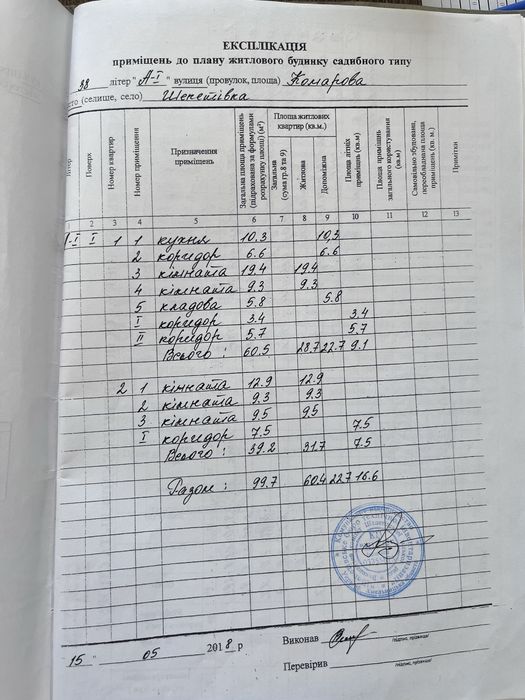 ЕКСПЛІКАЦІЯ
приміщень до плану житлового будинку садибного типу
38 літер "А-I" вулиця (провулок, площа) Комарова
сто (селище, село) Шепетівка
Літер Поверх Номер квартир Номер приміщення Призначення приміщень Загальна площа приміщень (підрахована за формулами розрахунку площі) (м²) Площа житлових квартир (кв.м.) Загальна (сума гр.8 та 9) Житлова Допоміжна Площа літніх приміщень (кв.м) Площа приміщень загального користування (кв.м) Самовільно збудована, переобладнана площа приміщень (кв. м.) Примітки
2 3 4 5 6 7 8 9 10 11 12 13
А-I I 1 1 кухня 10,3 10,3
2 коридор 6.6 6.6
3 кімната 19.4 19.4
4 кімната 9.3 9.3
5 кладова 5.8 5.8
I коридор 3.4 3.4
II коридор 5.7 5.7
Всього : 60.5 28.7 22.7 9.1
2 1 кімната 12.9 12.9
2 кімната 9.3 9.3
3 кімната 9.5 9.5
I коридор 7.5 7.5
Всього : 39.2 31.7 7.5
Разом : 99.7 60.4 22.7 16.6
15 " 05 2018 р Виконав
(підпис, прізвище)
Перевірив
(підпис, прізвище)